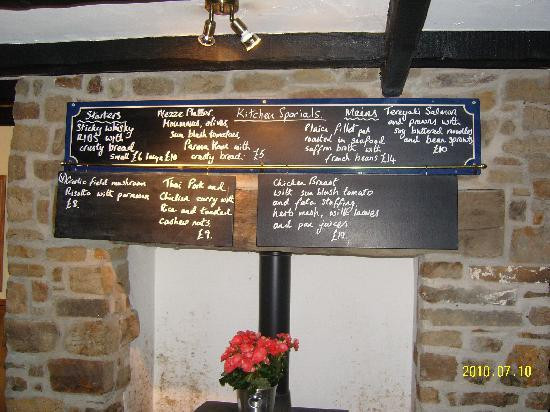 Kitchen Specials
Starters
Sticky whisky
RIBS with
crusty bread
small £6 large £10
Mezze Platter
Hummus, olives
sun blush tomatoes,
Parma Ham with
crusty bread. £5
Mains
Plaice fillet
roasted in seafood
saffron broth with
french beans £14
Tereyaki Salmon
and prawns with
soy buttered noodles
and bean sprouts
£10
(V) Garlic field mushroom
Risotto with parmesan
£8.
Thai Pork and
Chicken curry with
Rice and toasted
cashew nuts.
£9.
Chicken Breast
with sun blush tomato
and feta stuffing,
herb mash, wilted leaves
and pan juices
2010.07.10